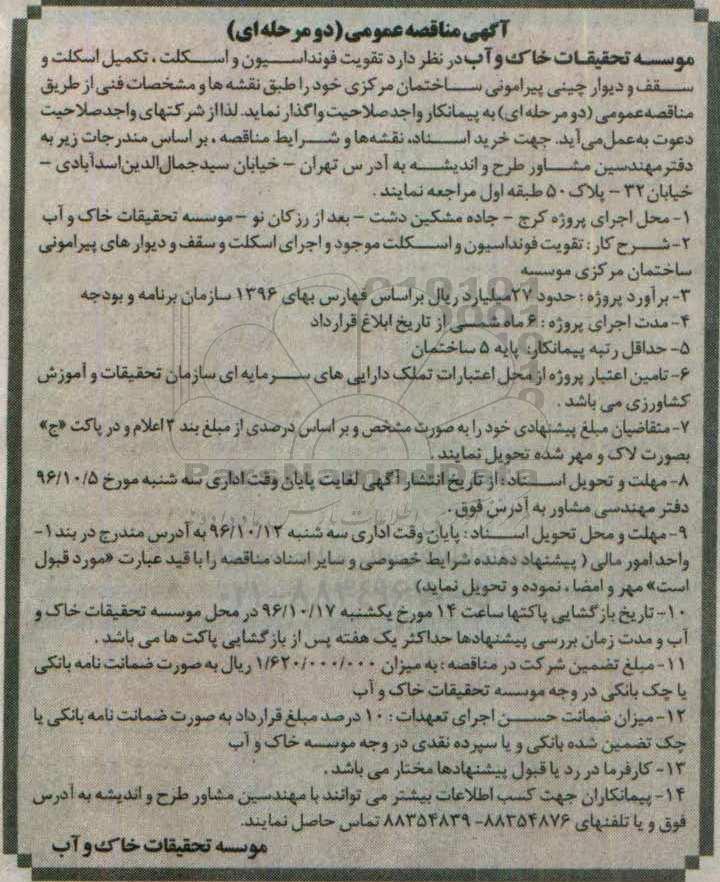 آگهی مناقصه عمومی (دو مرحله ای)
موسسه تحقیقات خاک و آب در نظر دارد تقویت فونداسیون و اسکلت، تکمیل اسکلت و
سقف و دیوار چینی پیرامونی ساختمان مرکزی خود را طبق نقشه ها و مشخصات فنی از طریق
مناقصه عمومی (دو مرحله ای) به پیمانکار واجد صلاحیت واگذار نماید. لذا از شرکتهای واجد صلاحیت
دعوت به عمل می آید. جهت خرید اسناد، نقشه ها و شرایط مناقصه، بر اساس مندرجات زیر به
دفتر مهندسین مشاور طرح و اندیشه به آدرس تهران – خیابان سیدجمال الدین اسدآبادی –
خیابان ۳۲ – پلاک ۵۰ طبقه اول مراجعه نمایند.
۱- محل اجرای پروژه کرج – جاده مشکین دشت – بعد از رزکان نو – موسسه تحقیقات خاک و آب
۲- شرح کار: تقویت فونداسیون و اسکلت موجود و اجرای اسکلت و سقف و دیوار های پیرامونی
ساختمان مرکزی موسسه
۳- برآورد پروژه: حدود ۲۷ میلیارد ریال براساس فهارس بهای ۱۳۹۶ سازمان برنامه و بودجه
۴- مدت اجرای پروژه: ۶ ماه شمسی از تاریخ ابلاغ قرارداد
۵- حداقل رتبه پیمانکار: پایه ۵ ساختمان
۶- تامین اعتبار پروژه از محل اعتبارات تملک دارایی های سرمایه ای سازمان تحقیقات و آموزش
کشاورزی می باشد.
۷- متقاضیان مبلغ پیشنهادی خود را به صورت مشخص و بر اساس درصدی از مبلغ بند ۳ اعلام و در پاکت «ج»
بصورت لاک و مهر شده تحویل نمایند.
ParsNamadData
۸- مهلت و تحویل اسناد: از تاریخ انتشار آگهی لغایت پایان وقت اداری سه شنبه مورخ ۹۶/۱۰/۵
دفتر مهندسی مشاور به آدرس فوق.
۹- مهلت و محل تحویل اسناد: پایان وقت اداری سه شنبه ۹۶/۱۰/۱۲ به آدرس مندرج در بند ۱-
واحد امور مالی ( پیشنهاد دهنده شرایط خصوصی و سایر اسناد مناقصه را با قید عبارت «مورد قبول
است» مهر و امضا، نموده و تحویل نماید)
۱۰- تاریخ بازگشایی پاکتها ساعت ۱۴ مورخ یکشنبه ۹۶/۱۰/۱۷ در محل موسسه تحقیقات خاک و
آب و مدت زمان بررسی پیشنهادها حداکثر یک هفته پس از بازگشایی پاکت ها می باشد.
۱۱- مبلغ تضمین شرکت در مناقصه: به میزان ۱/۶۲۰/۰۰۰/۰۰۰ ریال به صورت ضمانت نامه بانکی
یا چک بانکی در وجه موسسه تحقیقات خاک و آب
۱۲- میزان ضمانت حسن اجرای تعهدات: ۱۰ درصد مبلغ قرارداد به صورت ضمانت نامه بانکی یا
چک تضمین شده بانکی و یا سپرده نقدی در وجه موسسه خاک و آب
۱۳- کارفرما در رد یا قبول پیشنهادها مختار می باشد.
۱۴- پیمانکاران جهت کسب اطلاعات بیشتر می توانند با مهندسین مشاور طرح و اندیشه به آدرس
فوق و یا تلفنهای ۸۸۳۵۴۸۷۶- ۸۸۳۵۴۸۳۹ تماس حاصل نمایند.
موسسه تحقیقات خاک و آب